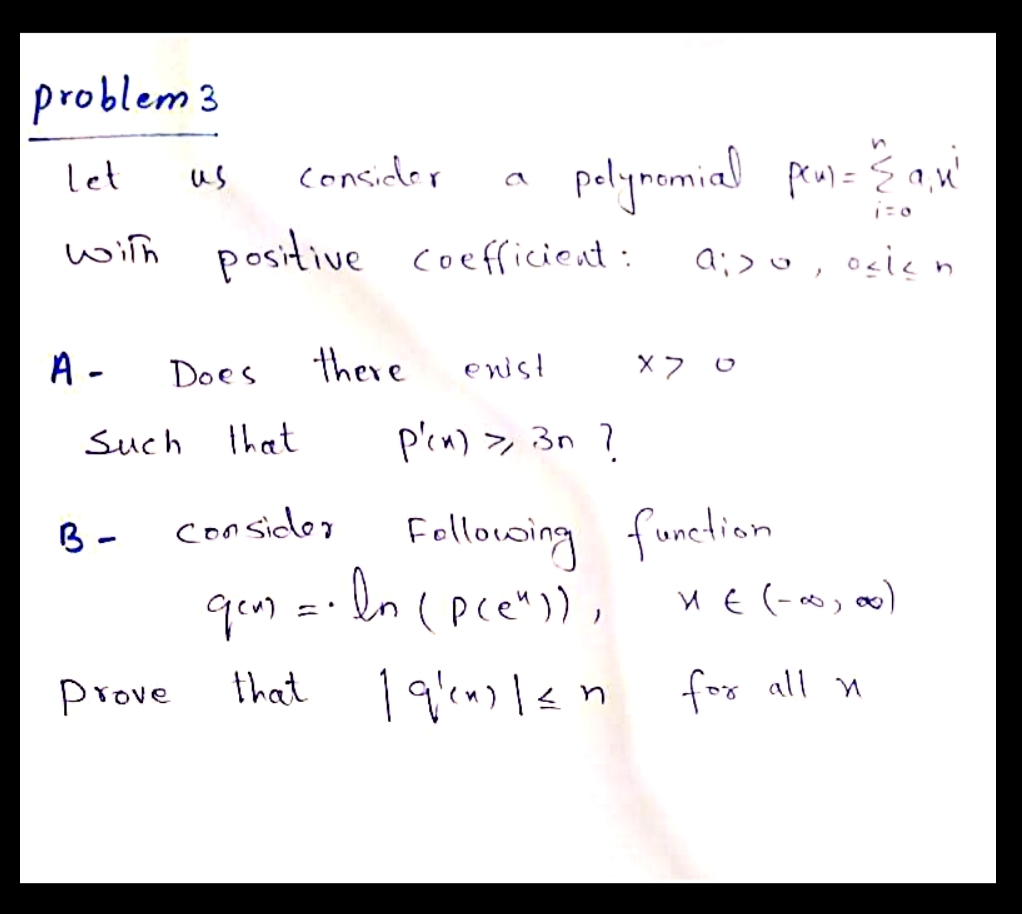 problem 3
Let us consider a polynomial p(x) = Σ_{i=0}^{n} a_i x^i
with positive coefficient: a_i > 0, 0 ≤ i ≤ n
A - Does there exist x > 0
such that p'(x) ≥ 3n ?
B - consider Following function
q(x) = ln(p(e^x)), x ∈ (-∞, ∞)
prove that |q'(x)| ≤ n for all x